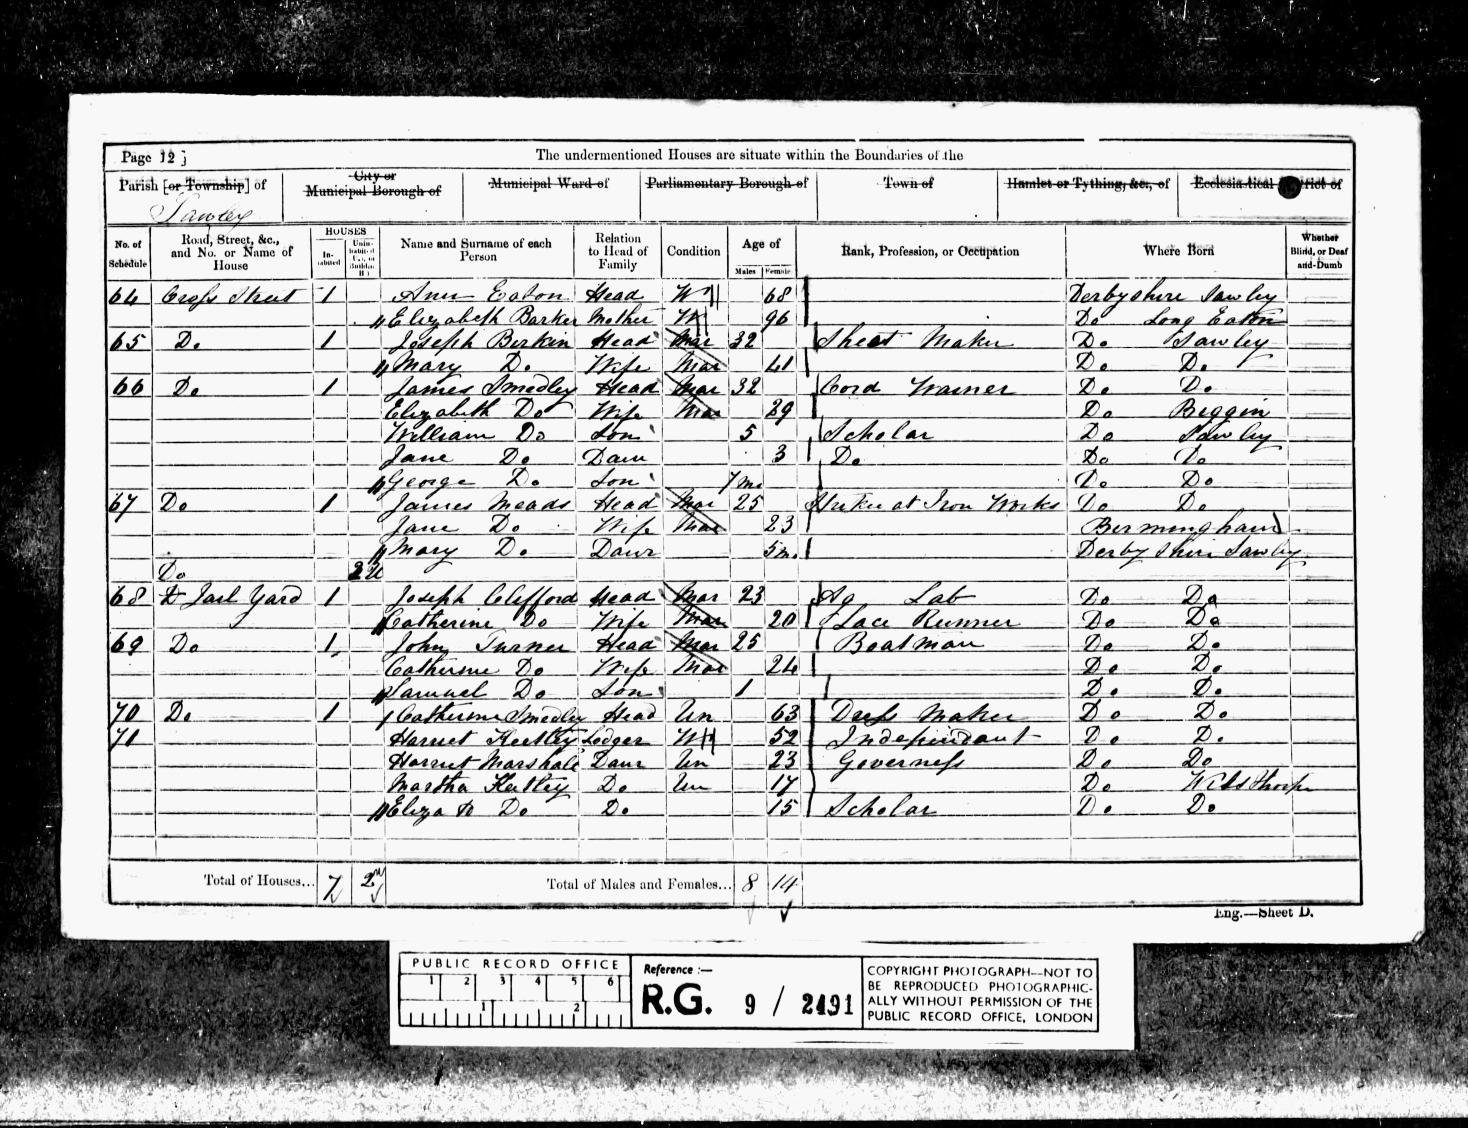 Page 12]
The undermentioned Houses are situate within the Boundaries of the
Parish [or Township] of
City or Municipal Borough of
Municipal Ward of
Parliamentary Borough of
Town of
Hamlet or Tything, &c., of
Ecclesiastical District of
Sawley
No. of Schedule
Road, Street, &c., and No. or Name of House
HOUSES
In-habited
Name and Surname of each Person
Relation to Head of Family
Condition
Age of
Males
Females
Rank, Profession, or Occupation
Where Born
Whether Blind, or Deaf and-Dumb
64 Cross Street 1 Ann Eaton Head W 68 Derbyshire Sawley
Elizabeth Barker Mother W 96 Do Long Eaton
65 Do 1 Joseph Birkin Head Mar 32 Sheet Maker Do Sawley
Mary Do Wife Mar 41 Do Do
66 Do 1 James Smedley Head Mar 32 Cord Wainer Do Do
Elizabeth Do Wife Mar 29 Do Biggin
William Do Son 5 Scholar Do Sawley
Jane Do Daur 3 Do Do Do
George Do Son 7 mo Do Do
67 Do 1 James Meads Head Mar 25 at Iron Works Do Do
Jane Do Wife Mar 23 Bermingham
Mary Do Daur 5 m. Derbyshire Sawley
Do 2 U
68 Jarl Yard 1 Joseph Clifford Head Mar 23 Ag Lab Do Do
Catherine Do Wife Mar 20 Lace Runner Do Do
69 Do 1 John Turner Head Mar 25 Boatman Do Do
Catherine Do Wife Mar 24 Do Do
Samuel Do Son 1 Do Do
70 Do 1 Catherine Smedley Head Un 63 Dress Maker Do Do
71 Harriet Keetley Lodger W 52 Independant Do Do
Harriet Marshall Daur Un 23 Governess Do Do
Martha Keetley Do Un 17 Do Wilsthorpe
Eliza Do Do 15 Scholar Do Do
Total of Houses... 7 2
Total of Males and Females... 8 14
Eng.—Sheet D.
PUBLIC RECORD OFFICE
1 2 3 4 5 6
1 2
Reference :—
R.G. 9 / 2491
COPYRIGHT PHOTOGRAPH—NOT TO
BE REPRODUCED PHOTOGRAPHIC-
ALLY WITHOUT PERMISSION OF THE
PUBLIC RECORD OFFICE, LONDON